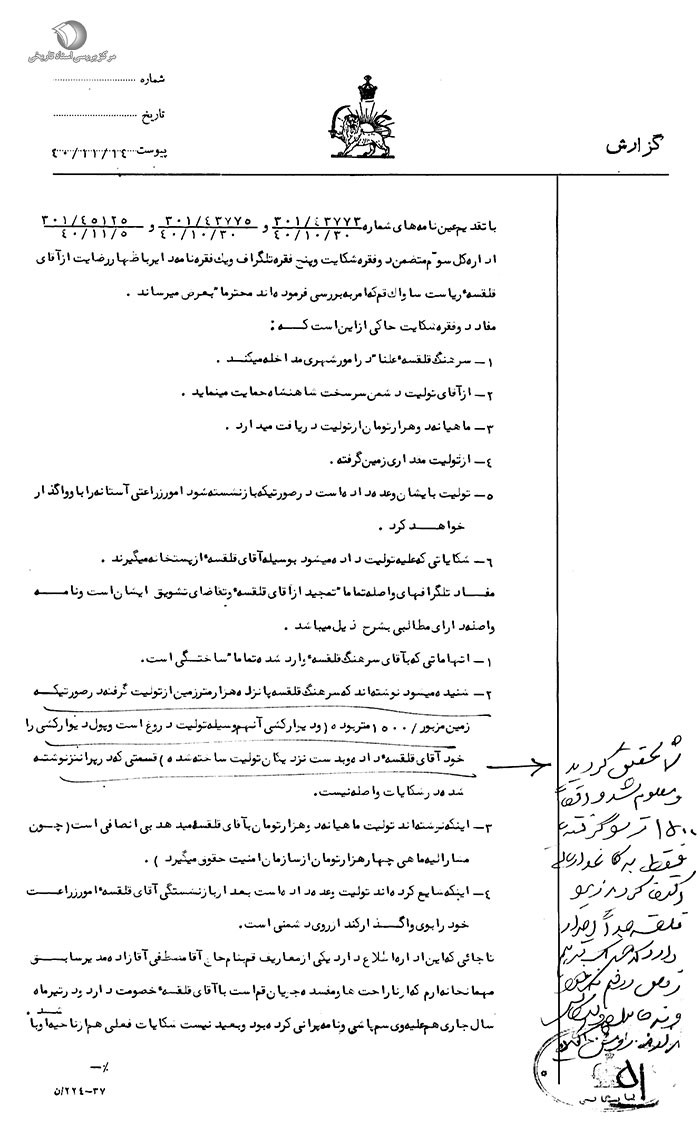 مرکز بررسی اسناد تاریخی
شماره
تاریخ
پیوست ۴۰/۱۱/۱۴
گزارش
با تقدیم عین نامه های شماره ۳۰۱/۴۳۷۷۳ ۴۰/۱۰/۳۰ و ۳۰۱/۴۳۷۷۵ ۴۰/۱۰/۳۰ و ۳۰۱/۴۵۱۲۵ ۴۰/۱۱/۵
اداره کل سوم متضمن دو فقره شکایت و پنج فقره تلگراف و یک فقره نامه دایر باظهار رضایت از آقای
قلقسه ریاست ساواک قم که امر به بررسی فرموده اند محترما" بعرض میرساند .
مفاد دو فقره شکایت حاکی از این است کــه :
۱ – سرهنگ قلقسه علنا" در امور شهری مداخله میکنــد .
۲ – از آقای تولیت دشمن سرسخت شاهنشاه حمایت مینماید .
۳ – ماهیانه دو هزار تومان از تولیت دریافت میدارد .
۴ – از تولیت مقداری زمین گرفته .
۵ – تولیت بایشان وعده داده است در صورتیکه بازنشسته شود امور زراعتی آستانه را با و واگذار
خواهــد کرد .
۶ – شکایاتی که علیه تولیت داده میشود بوسیله آقای قلقسه از پستخانه میگیرند .
مفــاد تلگرافهای واصله تماما" تمجید از آقای قلقسه و تقاضای تشویق ایشان است و نامــه
واصله دارای مطالبی بشرح ذیل میباشد .
۱ – اتهاماتی که بآقای سرهنگ قلقسه وارد شده تماما" ساختــگی است.
۲ – شنیده میشود نوشته اند که سرهنگ قلقسه پانزده هزار متر زمین از تولیت گرفته در صورتیکــه
زمین مزبور /۱۵۰۰ متر بوده (و دیوارکشی آنهم وسیله تولیت دروغ است و پول دیوارکشی را
خود آقای قلقسه داده و بدست نزدیکان تولیت ساخته شده ) قسمتی که در پرانتز نوشته
شده در شکایات واصله نیست.
۳ – اینکه نوشته اند تولیت ماهیانه دو هزار تومان بآقای قلقسه میدهد بی انصافی است (چــون
مشارالیه ماهی چهار هزار تومان از سازمان امنیت حقوق میگیرد ) .
۴ – اینکه شایع کرده اند تولیت وعده داده است بعد از بازنشستگی آقای قلقسه امور زراعــت
خود را بوی واگــذار کند از روی دشمنی است.
تا جائی که این اداره اطلاع دارد یکی از معاریف قم بنام حاج آقا مصطفی آقازاده مدیر سابــق
مهمانخانه ارم که از ناراحت ها و مفسده جویان قم است با آقای قلقسه خصومت دارد و در تیرماه
سال جاری هم علیه وی سم پاشی و نامه پرانی کرده بود و بعید نیست شکایات فعلی هم از ناحیه او با شد
تحقیق گردید
و معلوم شد واقعاً
۱۵۰۰ متر گرفته
فقط به کاغذ
قلقسه جداً اصرار
دارد که
–٪
۳۷-۲۲۴/ن